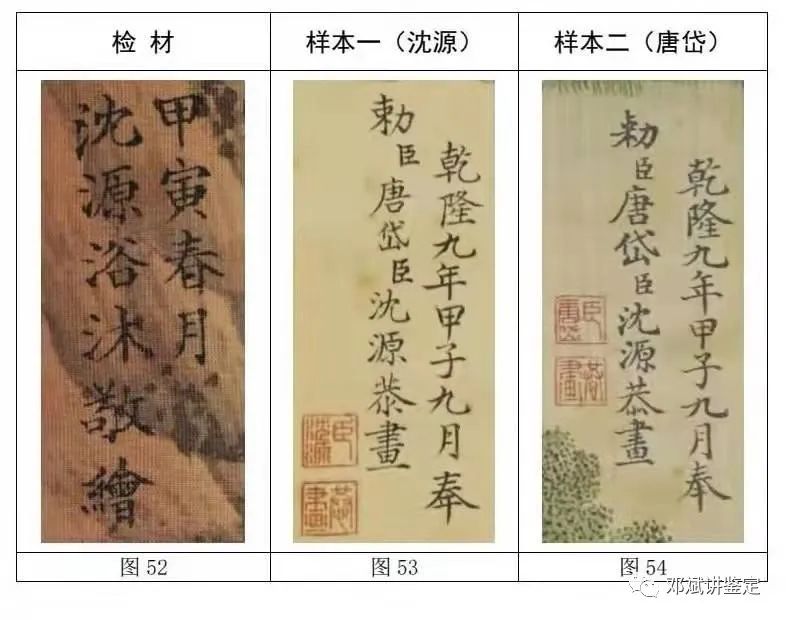 检 材
样本一（沈源）
样本二（唐岱）
甲寅春月
沈源浴沐敬繪
乾隆九年甲子九月奉
勅臣唐岱臣沈源恭畫
臣沈源
恭畫
乾隆九年甲子九月奉
勅臣唐岱臣沈源恭畫
臣唐岱
恭畫
图 52
图 53
图 54
邓斌讲鉴定